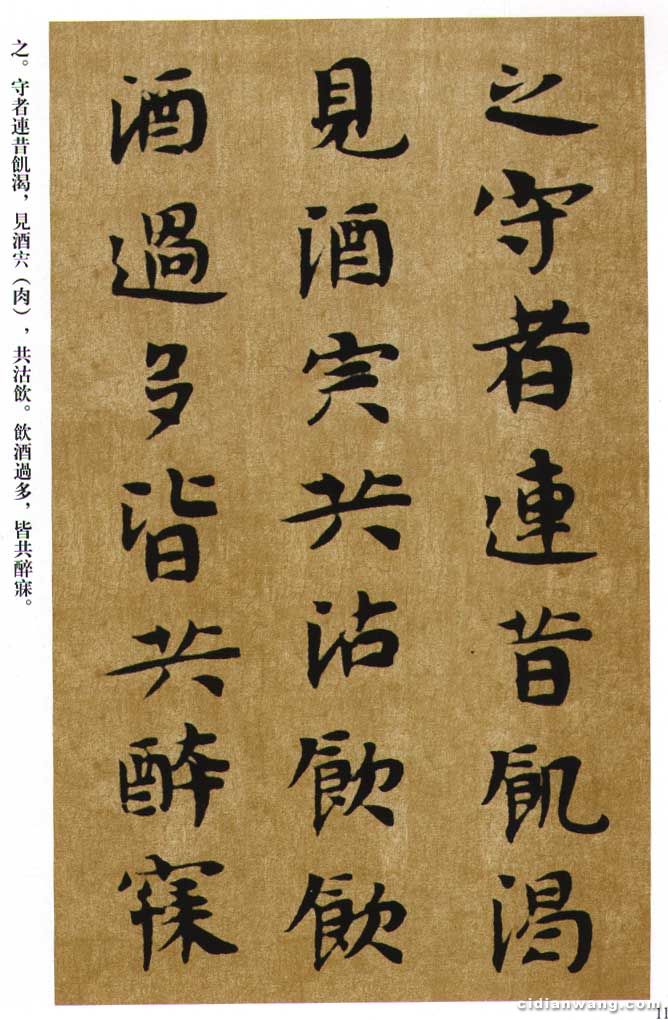 之守者連昔飢渴
見酒宍共沽飲飲
酒過多皆共醉寐
之。守者連昔飢渴，見酒宍（肉），共沽飲。飲酒過多，皆共醉寐。
11
cidianwang.com